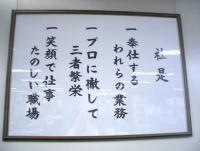 社是
一奉仕する
われらの業務
一プロに徹して
三者繁栄
一笑顔で仕事
たのしい職場